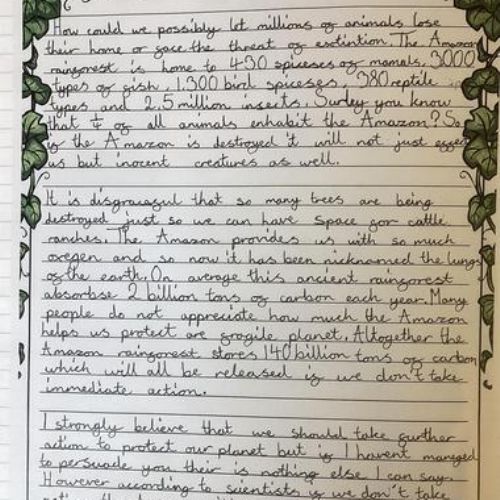 How could we possibly let millions of animals lose
their home or face the threat of exstintion. The Amazon
raingorest is home to 430 spiceses of mamals. 3000
types of fish, 1,300 bird spiceses, 380 reptile
types and 2.5 million insects. Surley you know
that ¼ of all animals enhabit the Amazon? So
if the Amazon is destroyed it will not just effect
us but inocent creatures as well.
It is disgraceful that so many trees are being
destroyed just so we can have space for cattle
ranches. The Amazon provides us with so much
oxegen and so now it has been nicknamed the lungs
of the earth. On average this ancient rainforest
absorbse 2 billion tons of carbon each year. Many
people do not appreciate how much the Amazon
helps us protect are fragile planet. Altogether the
Amazon rainforest stores 140 billion tons of carbon
which will all be released if we don't take
immediate action.
I strongly believe that we should take further
action to protect our planet but if I havent managed
to persuade you their is nothing else I can say.
However according to scientists if we don't take